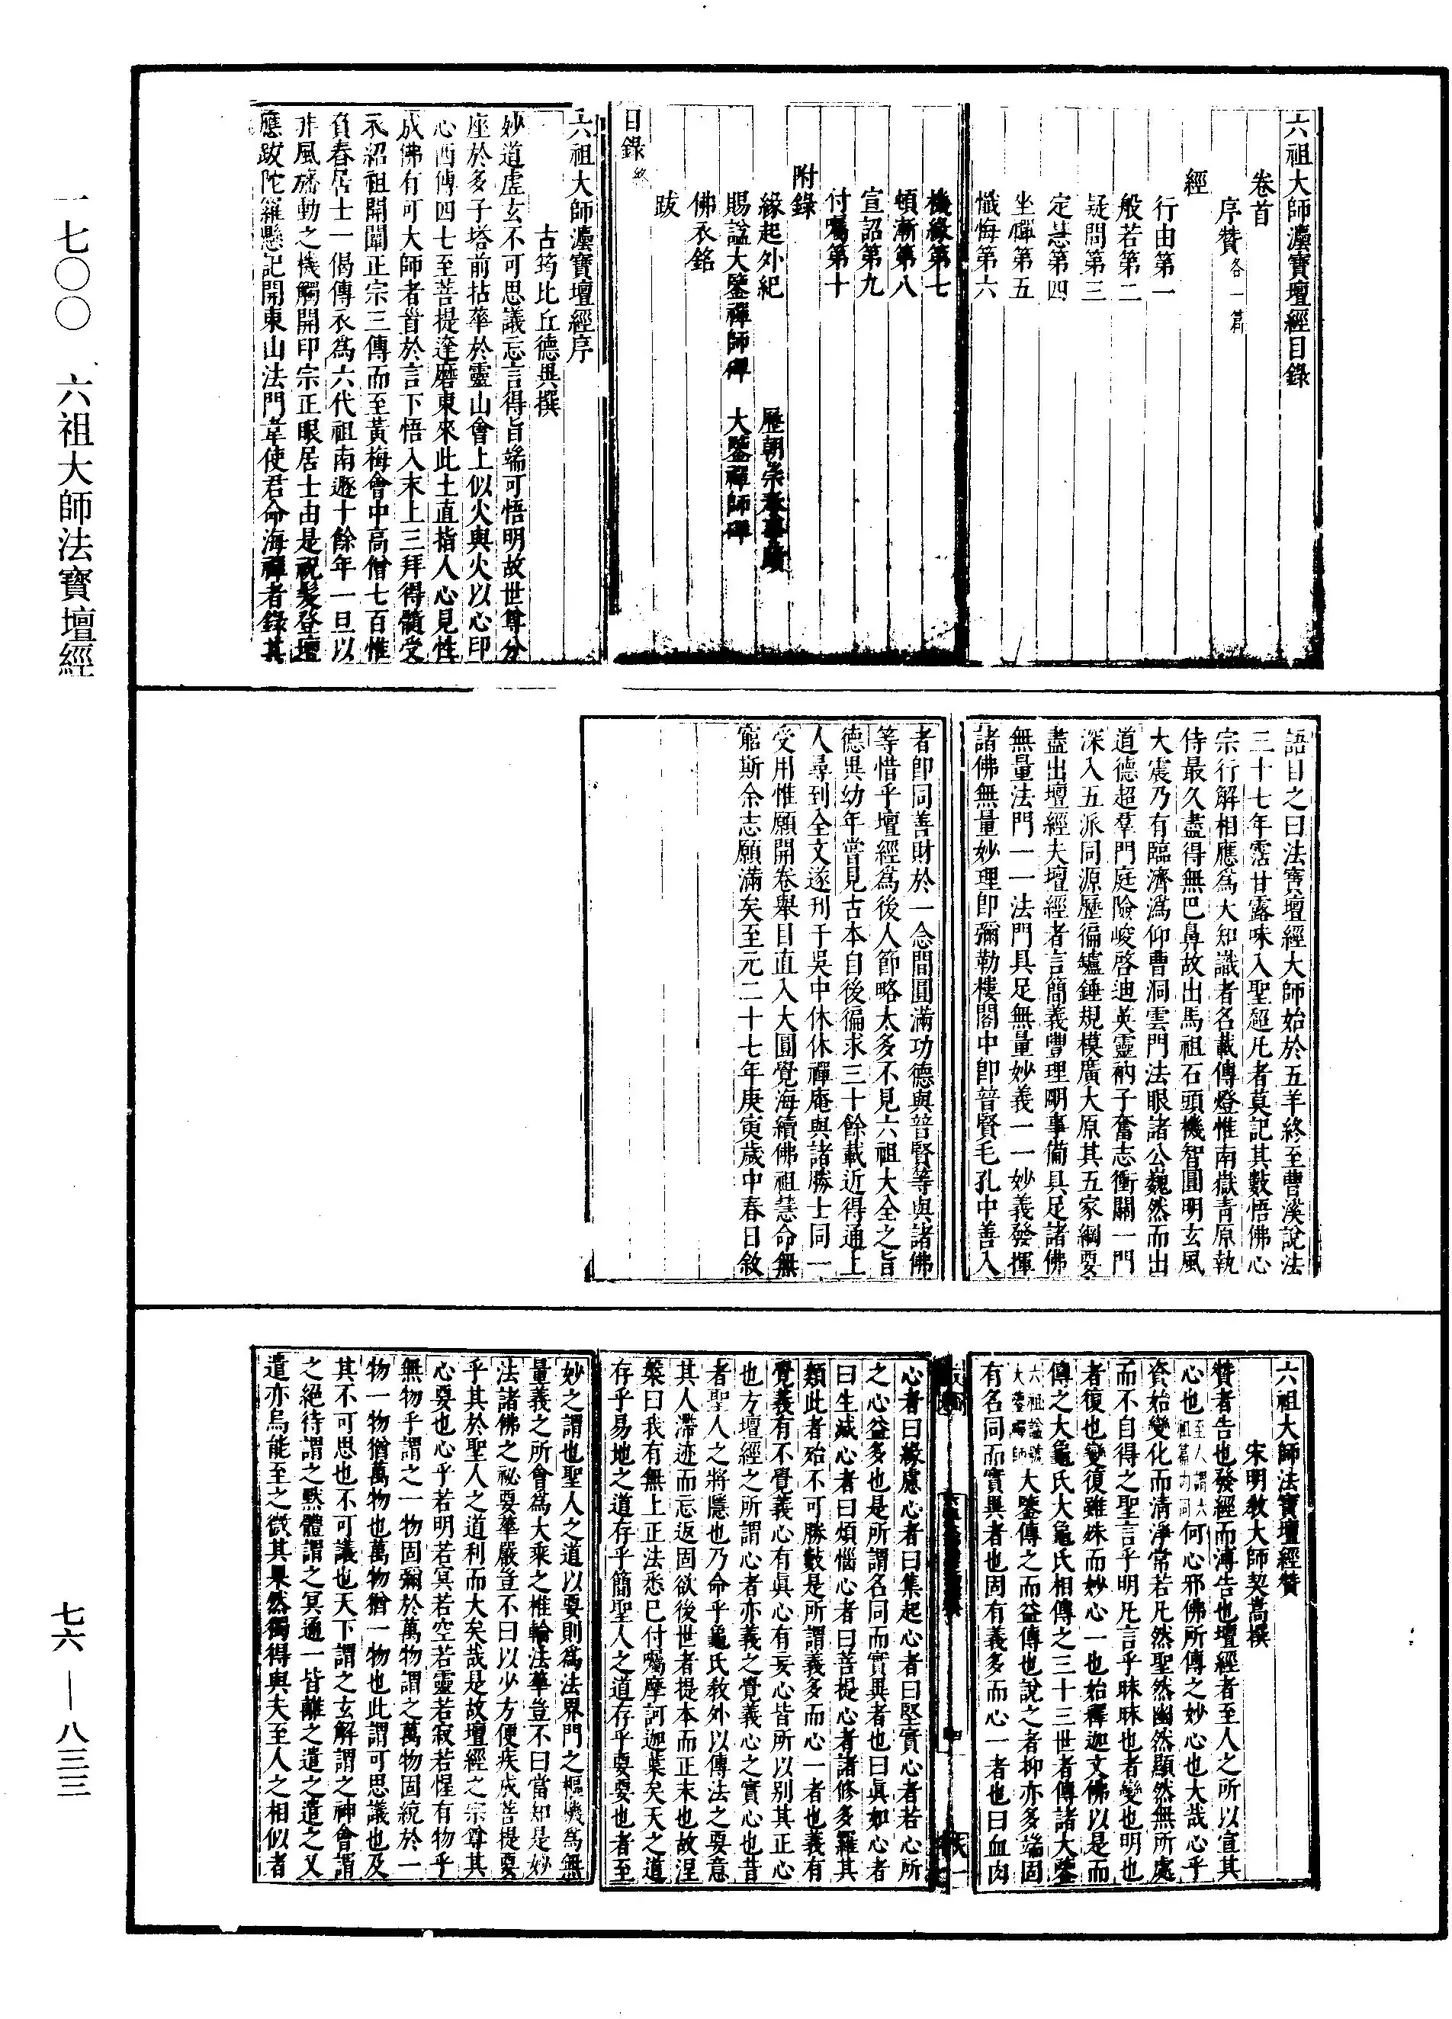 六祖大師法寶壇經目錄
卷首
序贊各一篇
經
行由第一
般若第二
疑問第三
定慧第四
坐禪第五
懺悔第六
機緣第七
頓漸第八
宣詔第九
付囑第十
附錄
緣起外紀　歷朝崇奉事蹟
賜謚大鑒禪師碑　大鑒禪師碑
佛衣銘
跋
目錄終
六祖大師法寶壇經序
古筠比丘德異撰
妙道虛玄不可思議忘言得旨端可悟明故世尊分
座於多子塔前拈華於靈山會上似火與火以心印
心西傳四七至菩提達磨東來此土直指人心見性
成佛有可大師者首於言下悟入末上三拜得髓受
衣紹祖開闡正宗三傳而至黃梅會中高僧七百惟
負舂居士一偈傳衣為六代祖南遯十餘年一旦以
非風旛動之機觸開印宗正眼居士由是祝髮登壇
應跋陀羅懸記開東山法門韋使君命海禪者錄其
語目之曰法寶壇經大師始於五羊終至曹溪說法
三十七年霑甘露味入聖超凡者莫記其數悟佛心
宗行解相應為大知識者名載傳燈惟南嶽青原執
侍最久盡得無巴鼻故出馬祖石頭機智圓明玄風
大震乃有臨濟溈仰曹洞雲門法眼諸公巍然而出
道德超羣門庭險峻啓迪英靈衲子奮志衝關一門
深入五派同源歷徧爐錘規模廣大原其五家綱要
盡出壇經夫壇經者言簡義豐理明事備具足諸佛
無量法門一一法門具足無量妙義一一妙義發揮
諸佛無量妙理即彌勒樓閣中即普賢毛孔中善入
者即同善財於一念間圓滿功德與普賢等與諸佛
等惜乎壇經為後人節略太多不見六祖大全之旨
德異幼年嘗見古本自後徧求三十餘載近得通上
人尋到全文遂刊于吳中休休禪庵與諸勝士同一
受用惟願開卷舉目直入大圓覺海續佛祖慧命無
窮斯余志願滿矣至元二十七年庚寅歲中春日敘
六祖大師法寶壇經贊
宋明敎大師契嵩撰
贊者告也發經而溥告也壇經者至人之所以宣其
心也至人謂六祖篇內同何心邪佛所傳之妙心也大哉心乎
資始變化而清淨常若凡然聖然幽然顯然無所處
而不自得之聖言乎明凡言乎昧昧也者變也明也
者復也變復雖殊而妙心一也始釋迦文佛以是而
傳之大龜氏大龜氏相傳之三十三世者傳諸大鑒
六祖謚號大鑒禪師大鑒傳之而益傳也說之者抑亦多端固
有名同而實異者也固有義多而心一者也曰血肉
心者曰緣慮心者曰集起心者曰堅實心者若心所
之心益多也是所謂名同而實異者也曰眞如心者
曰生滅心者曰煩惱心者曰菩提心者諸修多羅其
類此者殆不可勝數是所謂義多而心一者也義有
覺義有不覺義心有眞心有妄心皆所以別其正心
也方壇經之所謂心者亦義之覺義心之實心也昔
者聖人之將隱也乃命乎龜氏敎外以傳法之要意
其人滯迹而忘返固欲後世者提本而正末也故涅
槃曰我有無上正法悉已付囑摩訶迦葉矣天之道
存乎易地之道存乎簡聖人之道存乎要要也者至
妙之謂也聖人之道以要則為法界門之樞機為無
量義之所會為大乘之椎輪法華豈不曰當知是妙
法諸佛之祕要華嚴豈不曰以少方便疾成菩提要
乎其於聖人之道利而大矣哉是故壇經之宗尊其
心要也心乎若明若冥若空若靈若寂若惺有物乎
無物乎謂之一物固彌於萬物謂之萬物固統於一
物一物猶萬物也萬物猶一物也此謂可思議也及
其不可思也不可議也天下謂之玄解謂之神會謂
之絕待謂之默體謂之冥通一皆離之遣之遣之又
遣亦烏能至之微其果然獨得與夫至人之相似者
一七〇〇　六祖大師法寶壇經
七六—八三三